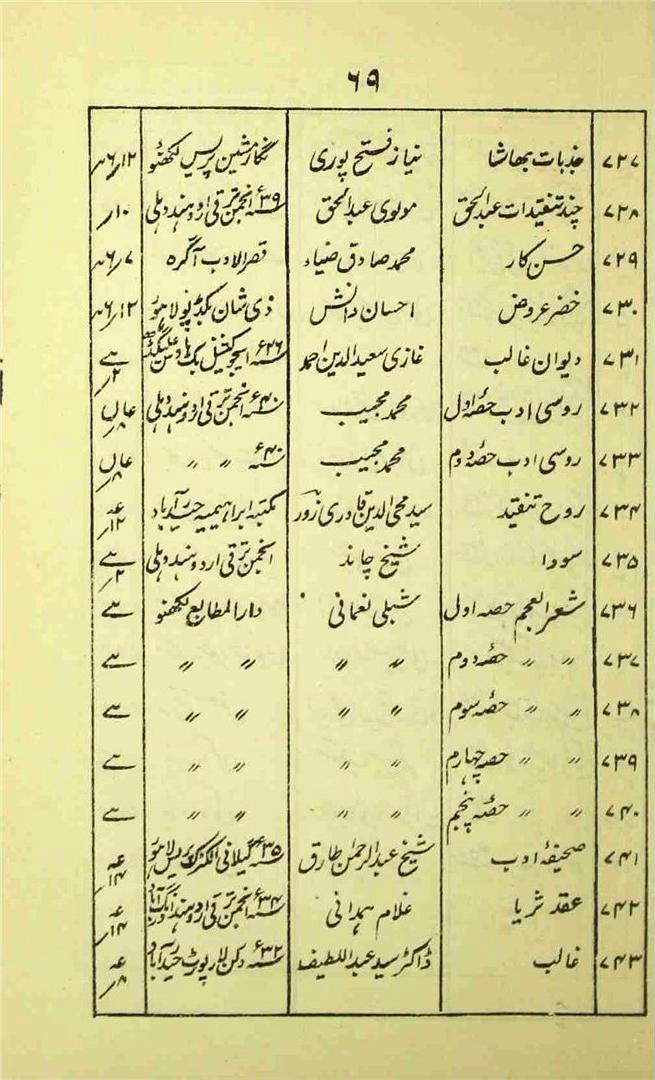 ۶۹
۷۲۷ جذبات بھاشا نیاز فتح پوری نگار مشین پریس لکھنؤ ۱۲/۶
۷۲۸ چند تنقیدات عبدالحق مولوی عبدالحق ۳۹ء انجمن ترقی اردو ہند دہلی ۱۰/
۷۲۹ حسن کار محمد صادق ضیاء قصر الادب آگرہ ۷/۶
۷۳۰ خضر عروض احسان دانش ذی شان بکڈپو لاہور ۱۲/۶
۷۳۱ دیوان غالب غازی سعید الدین احمد ایجوکیشنل بک ہاوس علیگڈھ
۷۳۲ روسی ادب حصۂ اول محمد مجیب ۴۰ء انجمن ترقی اردو ہند دہلی
۷۳۳ روسی ادب حصۂ دوم محمد مجیب ۴۰ء 〃 〃
۷۳۴ روح تنقید سید محی الدین قادری زور مکتبہ ابراہیمیہ حیدرآباد
۷۳۵ سودا شیخ چاند انجمن ترقی اردو ہند دہلی
۷۳۶ شعر العجم حصہ اول شبلی نعمانی دارالمطابع لکھنو
۷۳۷ 〃 〃 حصۂ دوم 〃 〃 〃 〃
۷۳۸ 〃 〃 حصۂ سوم 〃 〃 〃 〃
۷۳۹ 〃 〃 حصہ چہارم 〃 〃 〃 〃
۷۴۰ 〃 〃 حصۂ پنجم 〃 〃 〃 〃
۷۴۱ صحیفۂ ادب شیخ عبدالرحمٰن طارق ۳۵ء گیلانی الکٹرک پریس لاہور
۷۴۲ عقد ثریا غلام ہمدانی ۳۴ء انجمن ترقی اردو ہند اورنگ آباد
۷۴۳ غالب ڈاکٹر سید عبداللطیف ۳۲ء دکن لا رپورٹ حیدرآباد